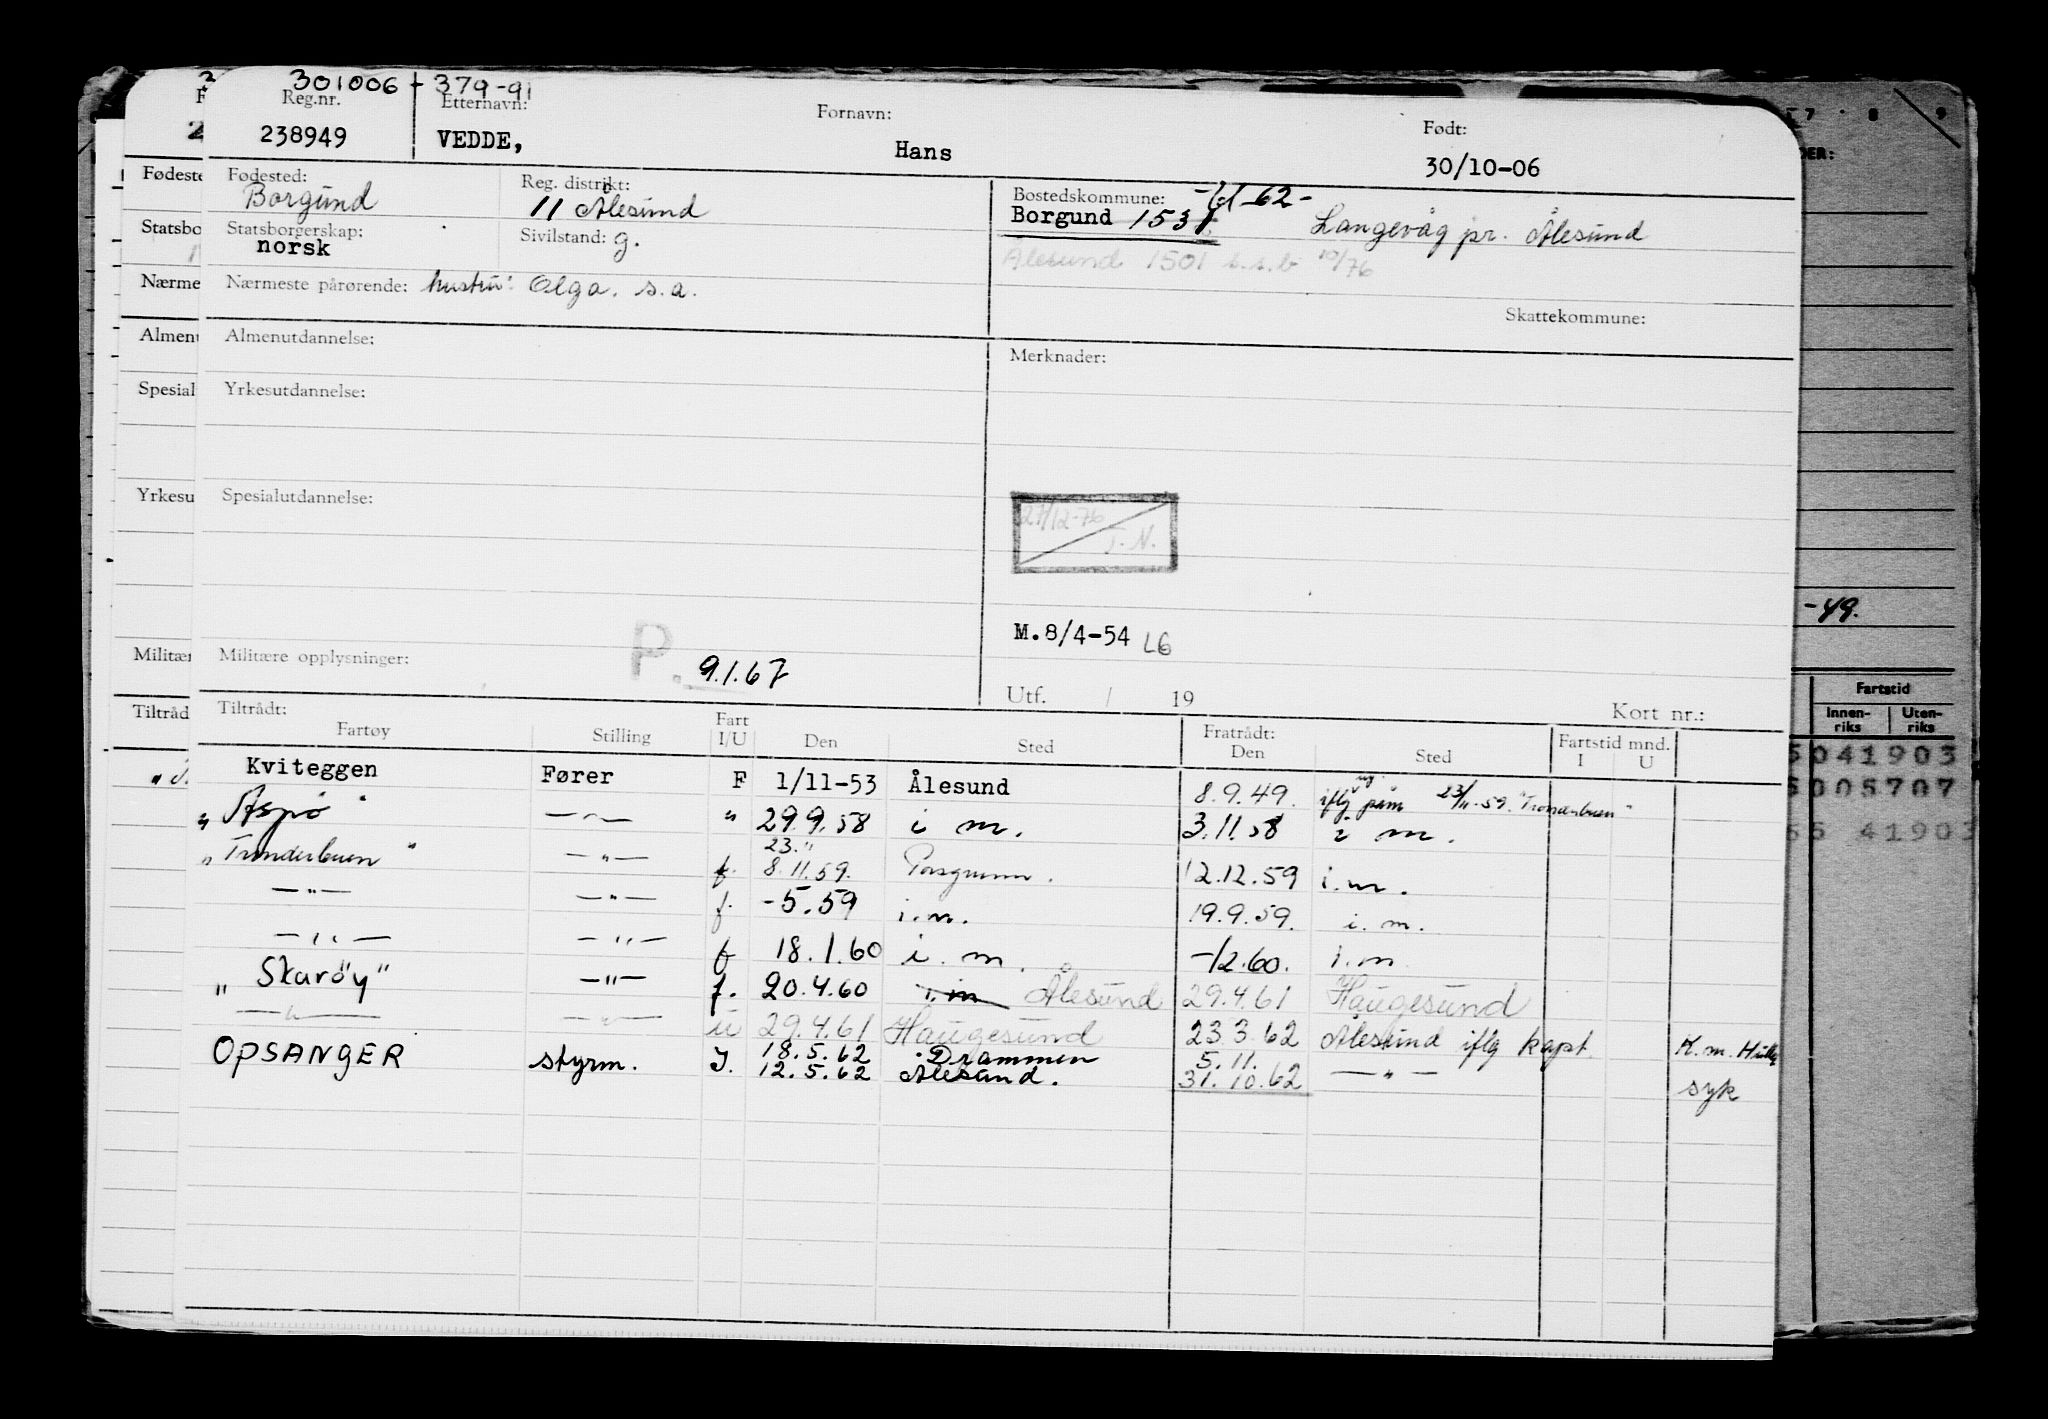 301006 - 379-91
Reg.nr. Etternavn: Fornavn: Født:
238949 VEDDE, Hans 30/10-06
Fødested: Reg. distrikt: Bostedskommune: -62-
Borgund 11 Ålesund Borgund 1531 Langevåg pr. Ålesund
Statsborgerskap: Sivilstand: g.
norsk Ålesund 1501 s.s.b 10/76
Nærmeste pårørende: hustru: Olga. s.a.
Skattekommune:
Almenutdannelse: Merknader:
Yrkesutdannelse:
Spesialutdannelse:
27/12-76
T.N.
-49.
M.8/4-54 L6
Militære opplysninger: P. 9.1.67
Utf. / 19 Kort nr.:
Tiltrådt: Fratrådt: Fartstid mnd.
Fartøy Stilling Fart I/U Den Sted Den Sted I U
Kviteggen Fører F 1/11-53 Ålesund 8.9.49. iflg 23/11-59.
"Aspø" -"- " 29.9.58 i m. 3.11.58 i m.
23."
-"- f. 8.11.59. 12.12.59 i.m.
-"- -"- f. -5.59 i.m. 19.9.59. i.m.
-"- -"- f 18.1.60 i.m. -12.60. i.m
"Skarøy" -"- f. 20.4.60 i.m Ålesund 29.4.61 Haugesund
-"- -"- u 29.4.61 Haugesund 23.3.62 Ålesund iflg kapt. K.m.
OPSANGER styrm. 18.5.62 Drammen 5.11.
12.5.62 Ålesund. 31.10.62 -"- syk
Fødeste
Statsbo
Nærme
Almen
Spesial
Yrkesu
Militær
Tiltråd
7 8 9
DER:
Fartstid
Innen-riks Uten-riks
5041903
5005707
55 41903